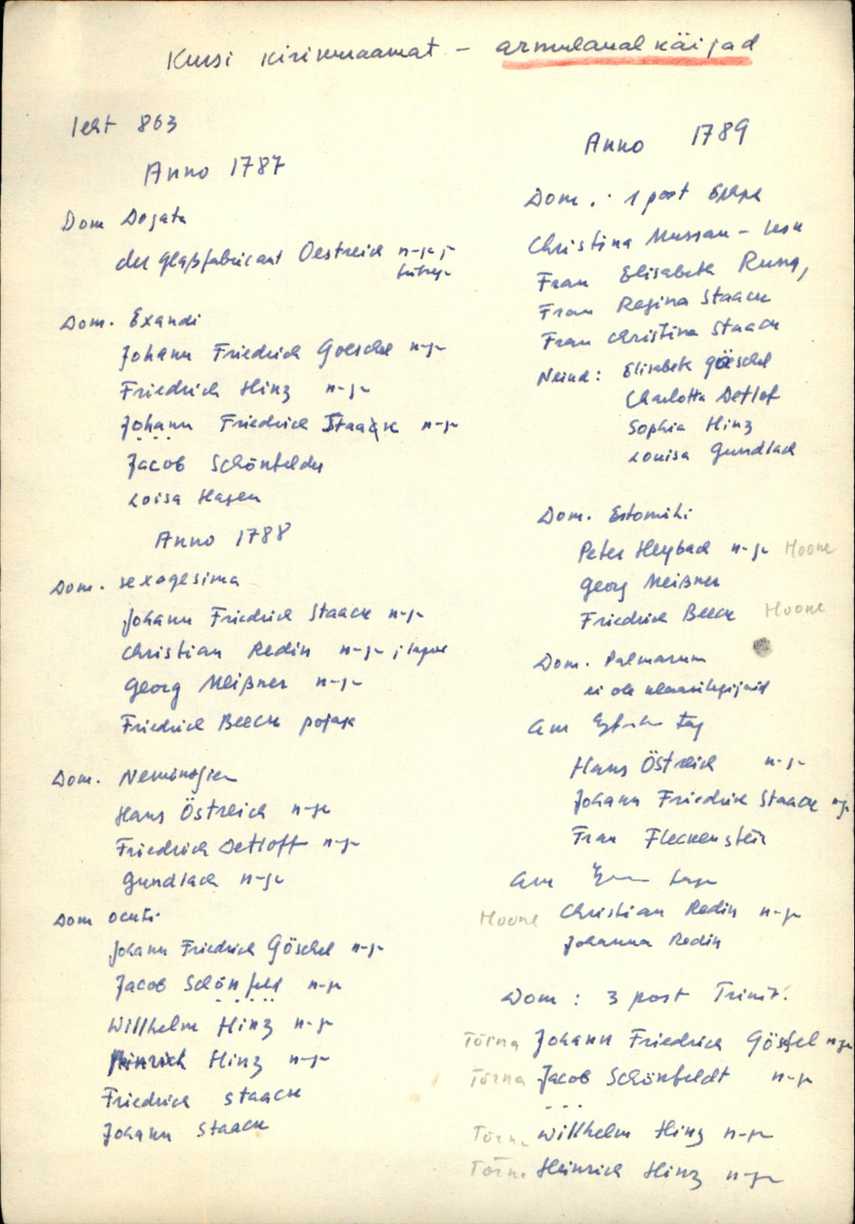 Kursi kirikuraamat - armulaual käijad
leht 863
Anno 1787
Dom Dogata
der Glaßfabricant Oestreich n-ga;
Dom. Exandi
Johann Friedrich Goeschel n-ga
Friedrich Hinz n-ga
Johann Friedrich Staack n-ga
Jacob Schönfelder
Loisa Hagen
Anno 1788
Dom. sexagesima
Johann Friedrich Staack n-ga
Christian Redin n-ga;
Georg Meißner n-ga
Friedrich Beeck pojaga
Dom.
Hans Östreich n-ga
Friedrich Detloff n-ga
Gundlach n-ga
Dom oculi
Johann Friedrich Göschel n-ga
Jacob Schönfeld n-ga
Willhelm Hinz n-ga
Heinrich Hinz n-ga
Friedrich Staack
Johann Staack
Anno 1789
Dom.: 1 post Epiph
Christina Mussau - lesk
Frau Elisabeth Rung,
Frau Regina Staack
Frau Christina Staack
Neiud: Elisabeth Göeschel
Charlotta Detlof
Sophia Hinz
Louisa Gundlach
Dom. Estomihi
Peter Heybach n-ga Hoone
Georg Meißner
Friedrich Beeck Hoone
Dom. Palmarum
ei ole klaasilisijaid
am tag
Hans Östreich n-ga
Johann Friedrich Staack n-ga
Frau Fleckenstein
am
Hoone Christian Redin n-ga
Johanna Redin
Dom: 3 post Trinit.
Tõrna Johann Friedrich Göschel n-ga
Tõrna Jacob Schönfeldt n-ga
Tõrna Willhelm Hinz n-ga
Tõrna Heinrich Hinz n-ga